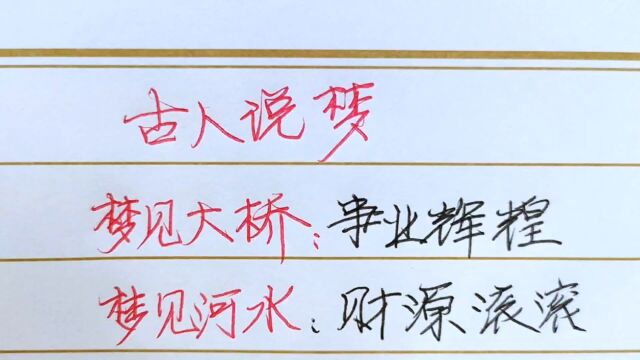 古人说梦
梦见大桥：事业辉煌
梦见河水：财源滚滚